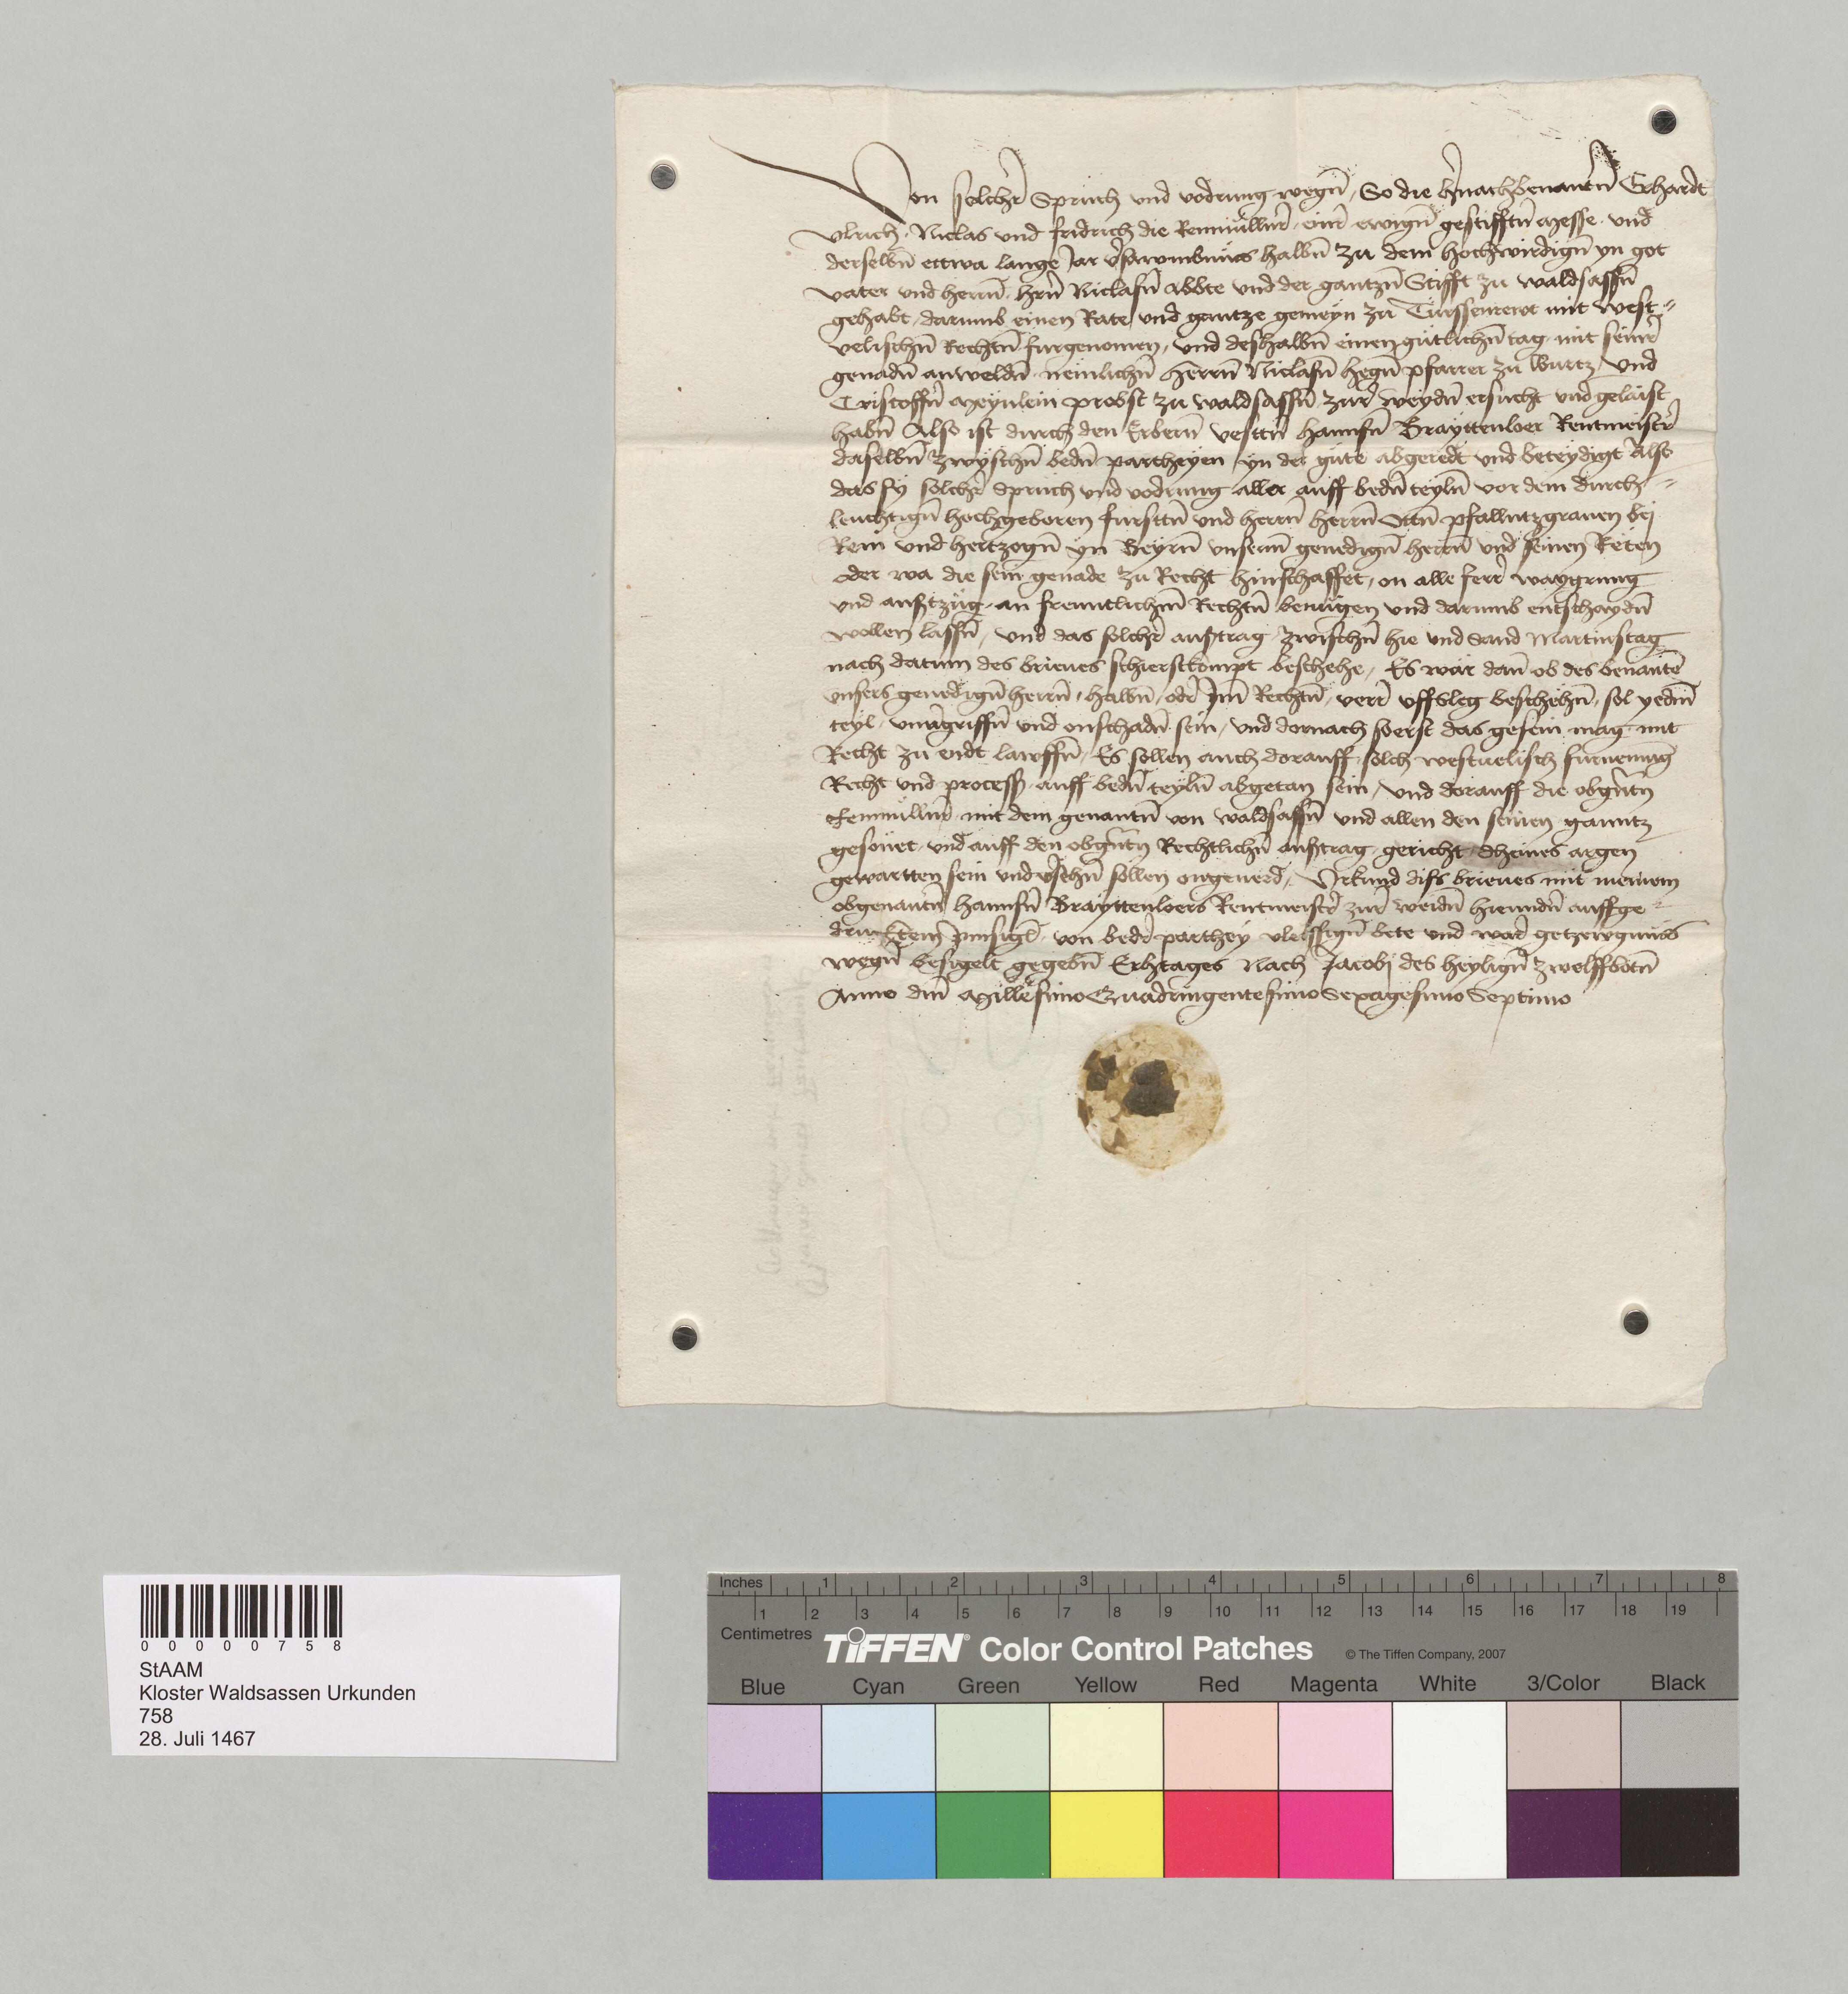 Von solcher Spruch und vodrung wegn̄, So die hernachbenantn̄ Erhardt
Vlrich, Niclas und fridrich die Renmüllner, einer ewign̄ gestifftn̄ Messe und
derselbn̄ ettwa lange Jar versawmbnüs halbn̄ zu dem hochwirdign̄ yn got
vater und herrn̄, hern̄ Niclasn̄ Abbte und der gantzn̄ Stifft zu waldsassn̄
gehabt, darumb einen Rate und gantze gemeyn zu Türssenrewt mit west-
velischn̄ Rechtn̄ furgenomen, und deshalbn̄ einen gütlichn̄ tag mit seiner
genadn̄ anweldn̄ nemlichn̄ herrn̄ Niclasn̄ hegn̄ pfarrer zu wurtz und
Cristoffn̄ Meynlein probst zu waldsassn̄ zur weydn̄ ersucht und gelaist
habn̄ Also ist durch den Erbern̄ vesttn̄ hannsn̄ Brayttenloer Rentmeister
daselbn̄ zwyschn̄ bedn̄ partheyen yn der güte abgeredt und beteydigt Also
das sy solcher Spruch und vodrung aller auff bedn̄ teyln̄ vor dem durch-
leuchtign̄ hochgeboren fursttn̄ und herrn̄ herrn̄ Ottn̄ pfallntzgraven bej
Rein und hertzogn̄ yn Beyrn̄ unserm̄ genedign̄ herrn̄ und seinen Reten
oder wa die sein genade zu Recht hinschaffet, on alle ferr waygrung
und ausztzüg, an freuntlichm̄ Rechtn̄ benügen und darumb entschaydn̄
wollen lassn̄, und das solcher austrag zwischn̄ hie und sand Martinstag
nach datum des brieues schierstkompt beschehe, Es wär dan̄ ob des benantē
unsers genedign̄ herrn̄, halbn̄, oder Im Rechtn̄, verrer uffsleg beschehn̄, sol yedm̄
teyl, unuergriffn̄ und onschadn̄ sein, und dornach so erst das gesein mag mit
Recht zu endt lawffn̄, Es sollen auch dorauff, solch westuelisch furnemūg
Recht und process, auff bedn̄ teyln̄ abgetan sein, und dorauff die obgn̄tn̄
Renmüllner mit dem genantn̄ von waldsassn̄ und allen den seinen ganntz
gesönet, und auff den obgn̄tn̄ Rechtlichn̄ austrag, gericht, dheines argen
gewartten sein und versehn̄ sollen ongeuerd, Urkund diss brieues mit meinem
obgenantn̄ hannsn̄ Brayttenloers Rentmeister zur weidn̄ hieundn̄ auffge-
drucktem Innsigl, von beder parthey vleissign̄ bete und warer getzewgnüss
wegn̄ besigelt gegebn̄ Erhtages Nach Jacobj des heylign̄ zwelffbotn̄
Anno dn̄i Millesimo Quadringentesimo Sexagesimo Septimo
0 0 0 0 0 7 5 8
StAAM
Kloster Waldsassen Urkunden
758
28. Juli 1467
Inches 1 2 3 4 5 6 7 8
1 2 3 4 5 6 7 8 9 10 11 12 13 14 15 16 17 18 19
Centimetres
TIFFEN® Color Control Patches © The Tiffen Company, 2007
Blue Cyan Green Yellow Red Magenta White 3/Color Black